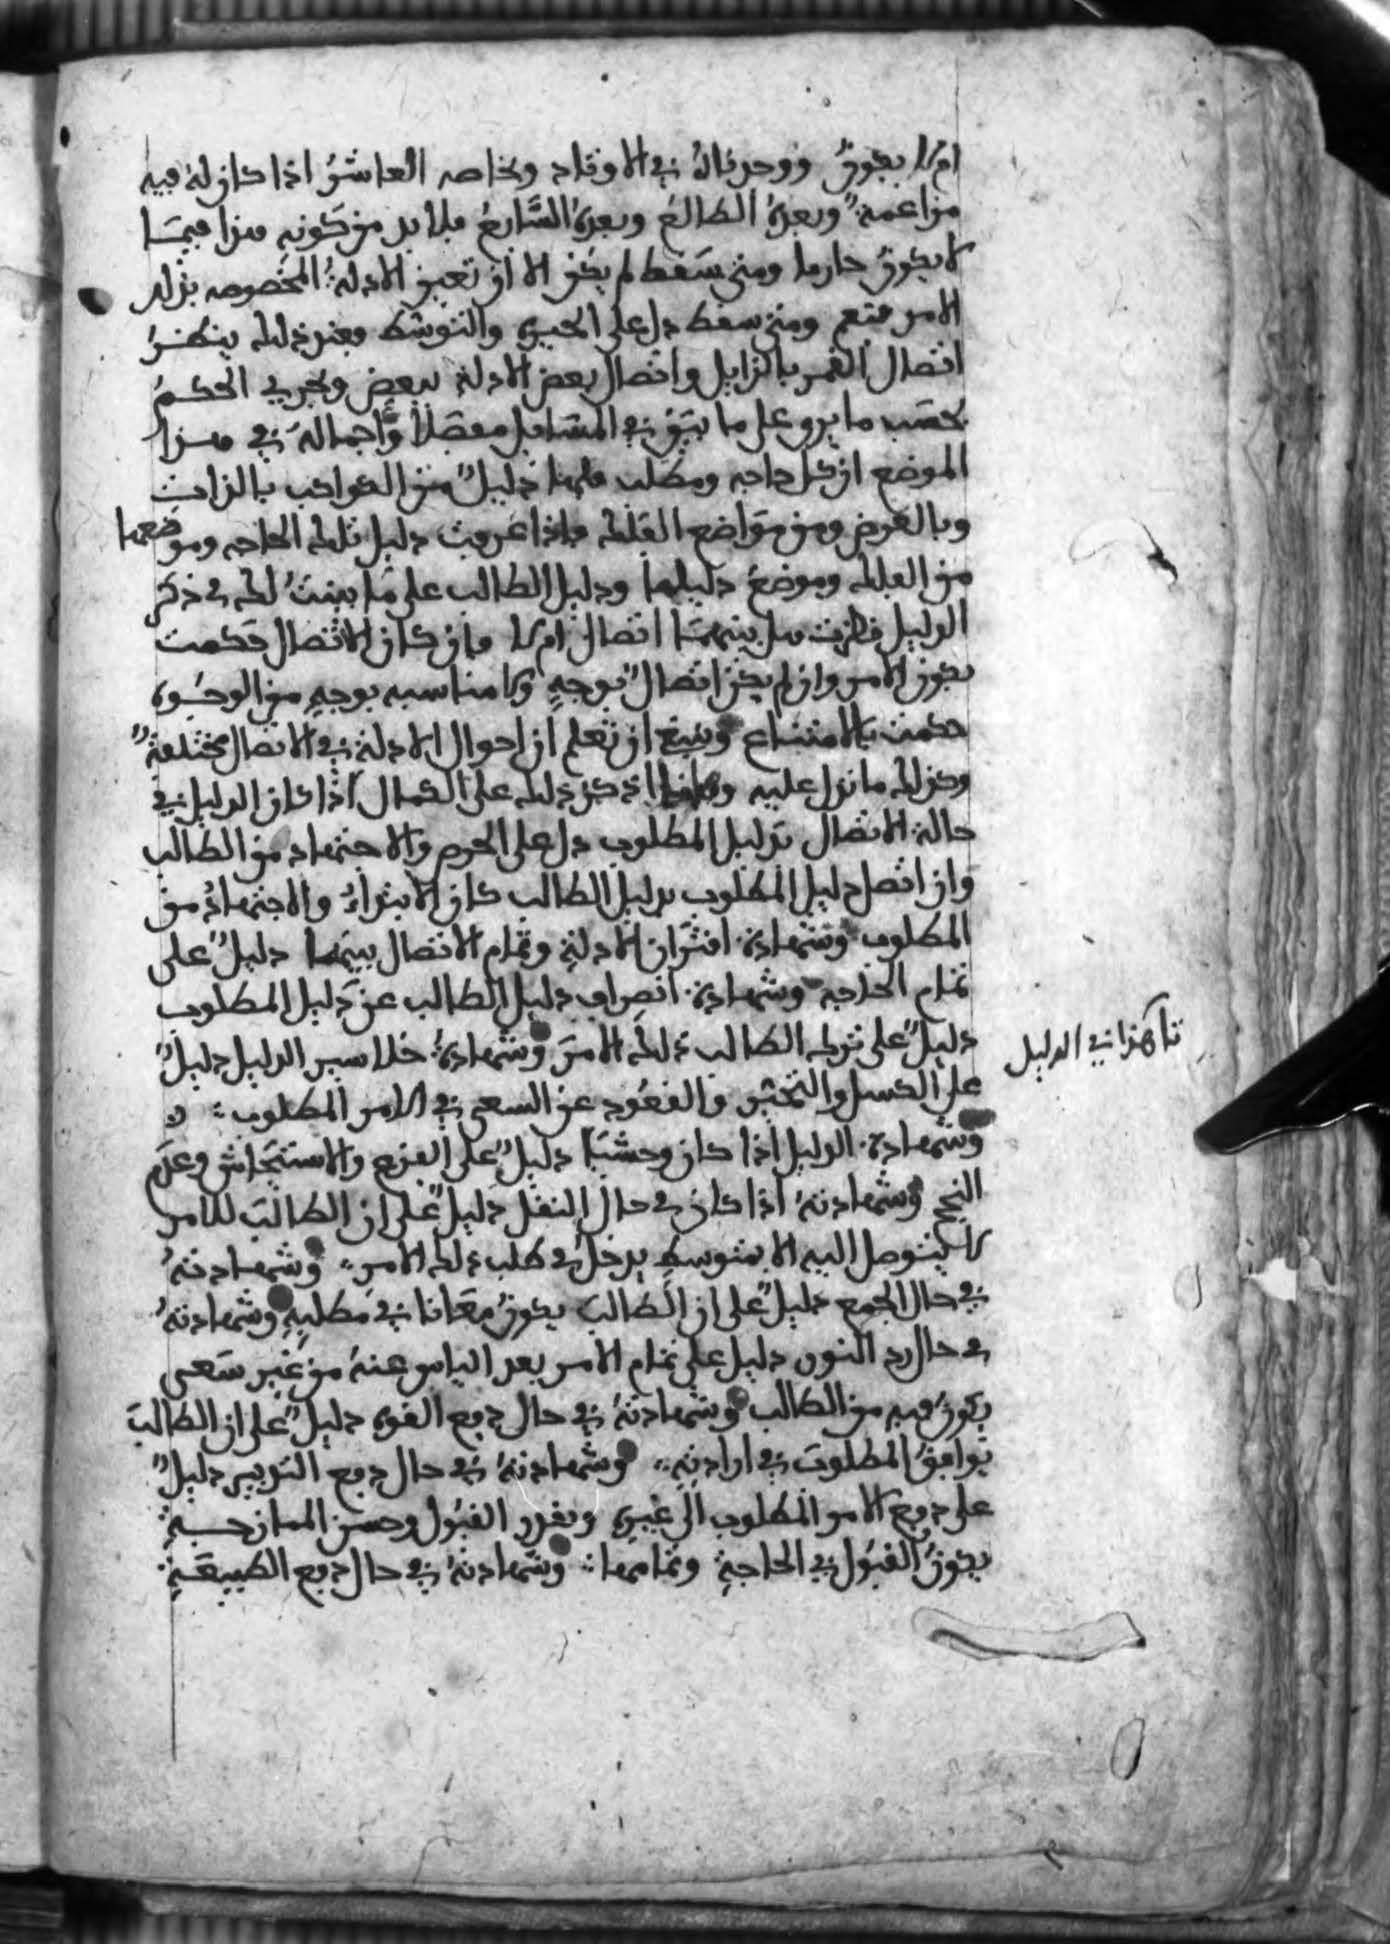 ام لا يكون ووجدناه في الاوتاد وبخاصه العاشر اذا كان له فيه
مزاعمة وبعده الطالع وبعده السابع فلا بد من كونه هذا فيما
لا يكون حازما ومتى سقط لم يكن الا ان تعين الادلة المخصوصه بذلك
الامر فتعم ومتى سقط دل على الحيرة والتوسط فعند ذلك ينظر
اتصال القمر بالزايل واتصال بعض الادلة ببعض ويجري الحكم
بحسب ما يرد على ما تبين في المسايل مفصلا واجماله في هذا
الموضع ان كل حاجه ومطلب فلهما دليل من الكواكب بالذات
وبالعرض ومن مواضع الفلك فاذا عرفت دليل تلك الحاجه وموضعها
من الفلك وموضع دليلها ودليل الطالب على ما بينت لك في ذكر
الدليل نظرت هل بينهما اتصال ام لا فان كان الاتصال حكمت
بكون الامر وان لم يكن اتصال بوجه ولا مناسبه بوجه من الوجوه
حكمت بالامتناع وينبغي ان تعلم ان احوال الادلة في الاتصال مختلفة
وكذلك ما تدل عليه وهانا اذكر ذلك على الكمال اذا كان الدليل في
حالة الاتصال بدليل المطلوب دل على الحرص والاجتهاد من الطالب
وان اتصل دليل المطلوب بدليل الطالب كان الابتداء والاجتهاد من
المطلوب وشهادة اقتران الادلة وتمام الاتصال بينهما دليل على
تمام الحاجه وشهادة انصراف دليل الطالب عن دليل المطلوب
دليل على ترك الطالب ذلك الامر وشهادة خلا سير الدليل دليل
على الكسل والتخثر والقعود عن السعي في الامر المطلوب
وشهادة الدليل اذا كان وحشيا دليل على الفزع والاستيحاش وعدم
النجح وشهادته اذا كان في حال النقل دليل على ان الطالب للامر
لا يتوصل اليه الا بمتوسط يدخل في طلب ذلك الامر وشهادته
في حال الجمع دليل على ان الطالب يكون معانا في مطلبه وشهادته
في حال رد النور دليل على تمام الامر بعد الياس عنه من غير سعي
يكون فيه من الطالب وشهادته في حال دفع القوة دليل على ان الطالب
يوافق المطلوب في ارادته وشهادته في حال دفع التدبير دليل
على دفع الامر المطلوب الى غيره وبقدر القبول وحسن الممازجة
يكون القبول في الحاجة وتمامها وشهادته في حال دفع الطبيعة
تا كذا في الدليل